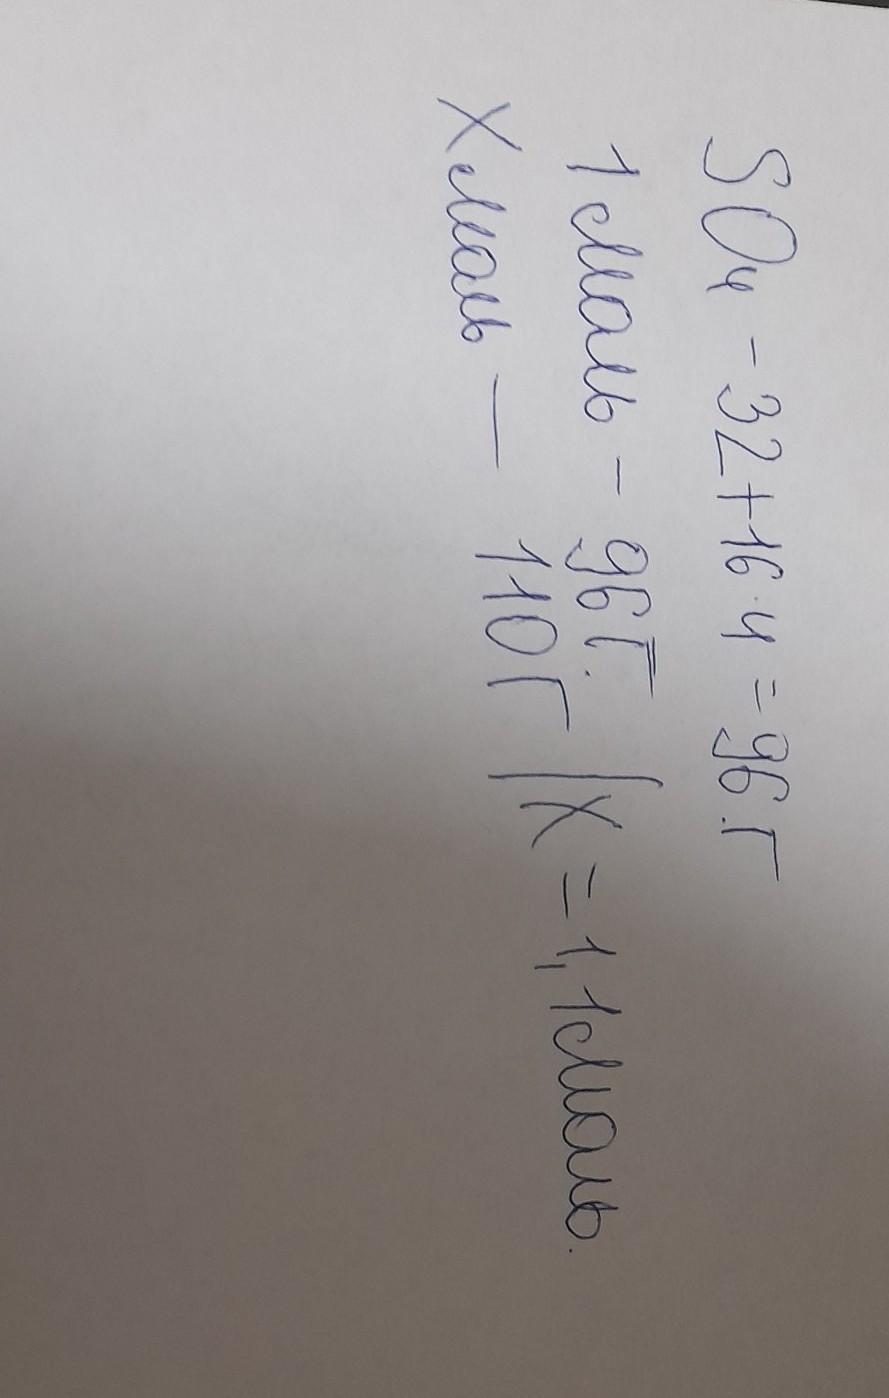 SO₄ - 32+16·4 = 96.г
1 моль - 96 г.
X моль — 110 г | X = 1,1 моль.